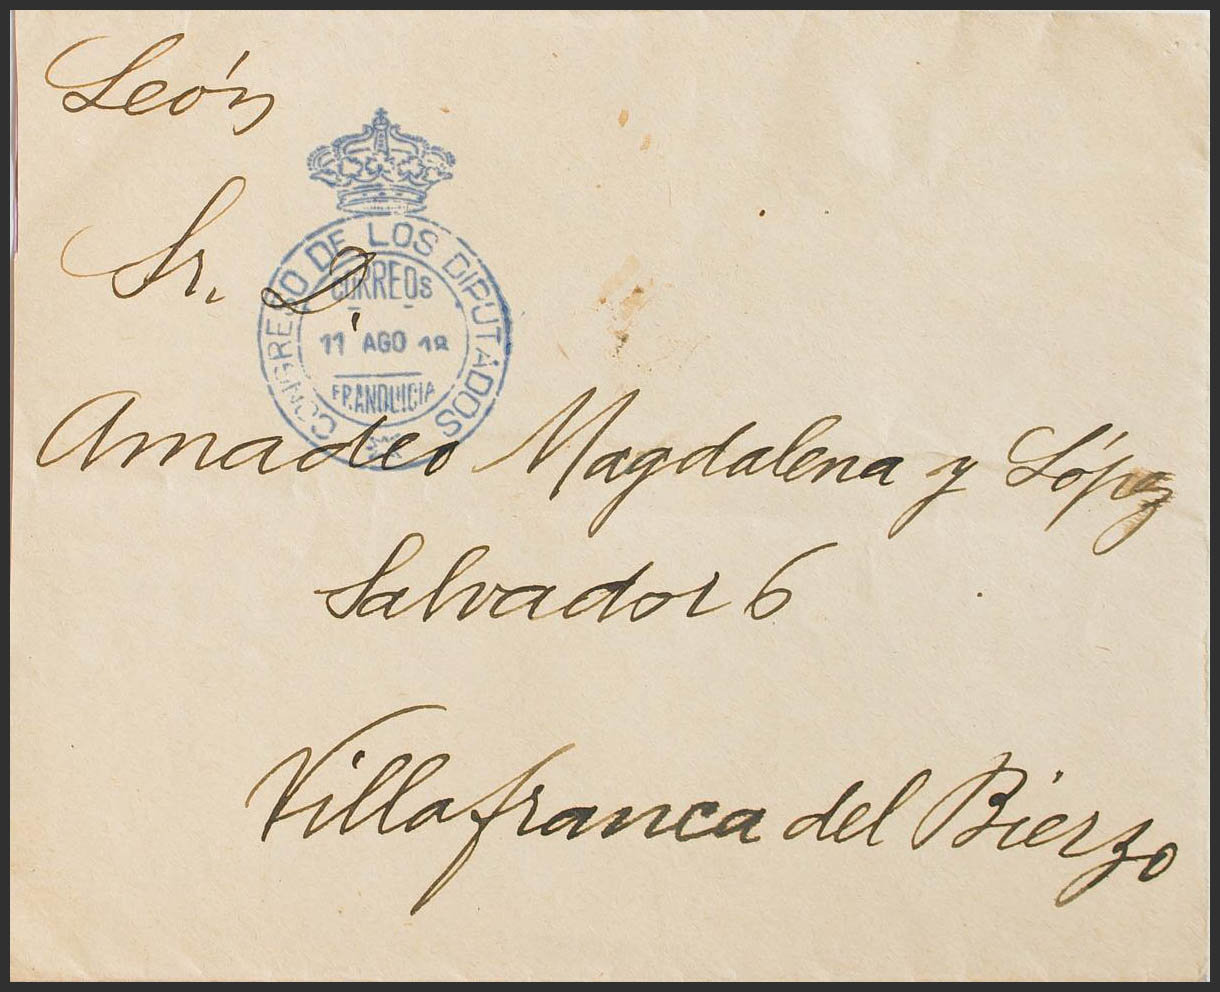 León
Sr. D.
CONGRESO DE LOS DIPUTADOS
CORREOS
11 AGO 18
FRANQUICIA
Amadeo Magdalena y López
Salvador 6
Villafranca del Bierzo